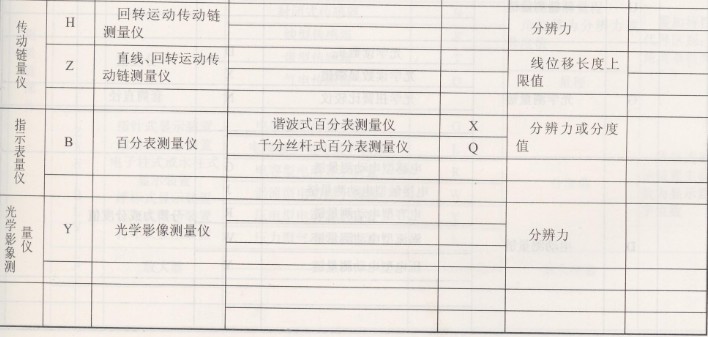 传动链量仪
H
回转运动传动链
测量仪
分辨力
Z
直线、回转运动传
动链测量仪
线位移长度上
限值
指示表量仪
B
百分表测量仪
谐波式百分表测量仪
X
千分丝杆式百分表测量仪
Q
分辨力或分度
值
光学影象测
量仪
Y
光学影像测量仪
分辨力